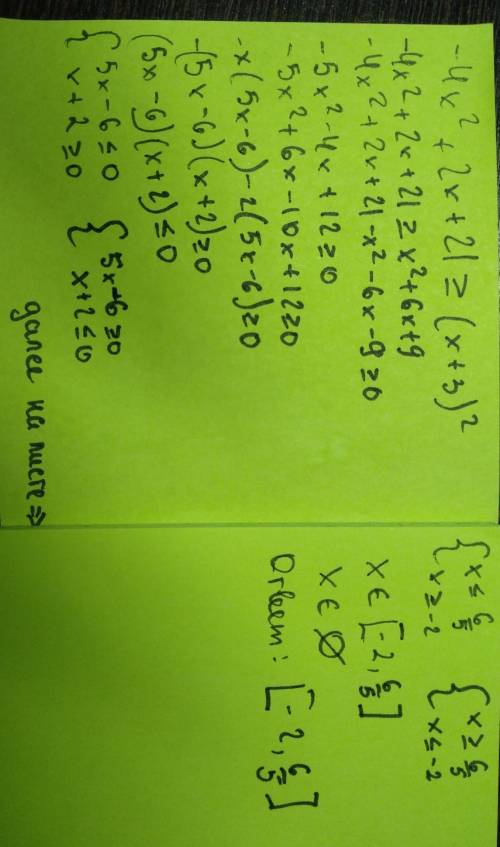 -4x² + 2x + 21 ≥ (x+3)²
-4x² + 2x + 21 ≥ x² + 6x + 9
-4x² + 2x + 21 - x² - 6x - 9 ≥ 0
-5x² - 4x + 12 ≥ 0
-5x² + 6x - 10x + 12 ≥ 0
-x(5x-6) - 2(5x-6) ≥ 0
-(5x-6)(x+2) ≥ 0
(5x-6)(x+2) ≤ 0
{ 5x-6 ≤ 0 { 5x-6 ≥ 0
x+2 ≥ 0 x+2 ≤ 0
далее на листе ⇒
{ x ≤ 6/5 { x ≥ 6/5
x ≥ -2 x ≤ -2
x ∈ [-2, 6/5]
x ∈ ∅
Ответ: [-2, 6/5]